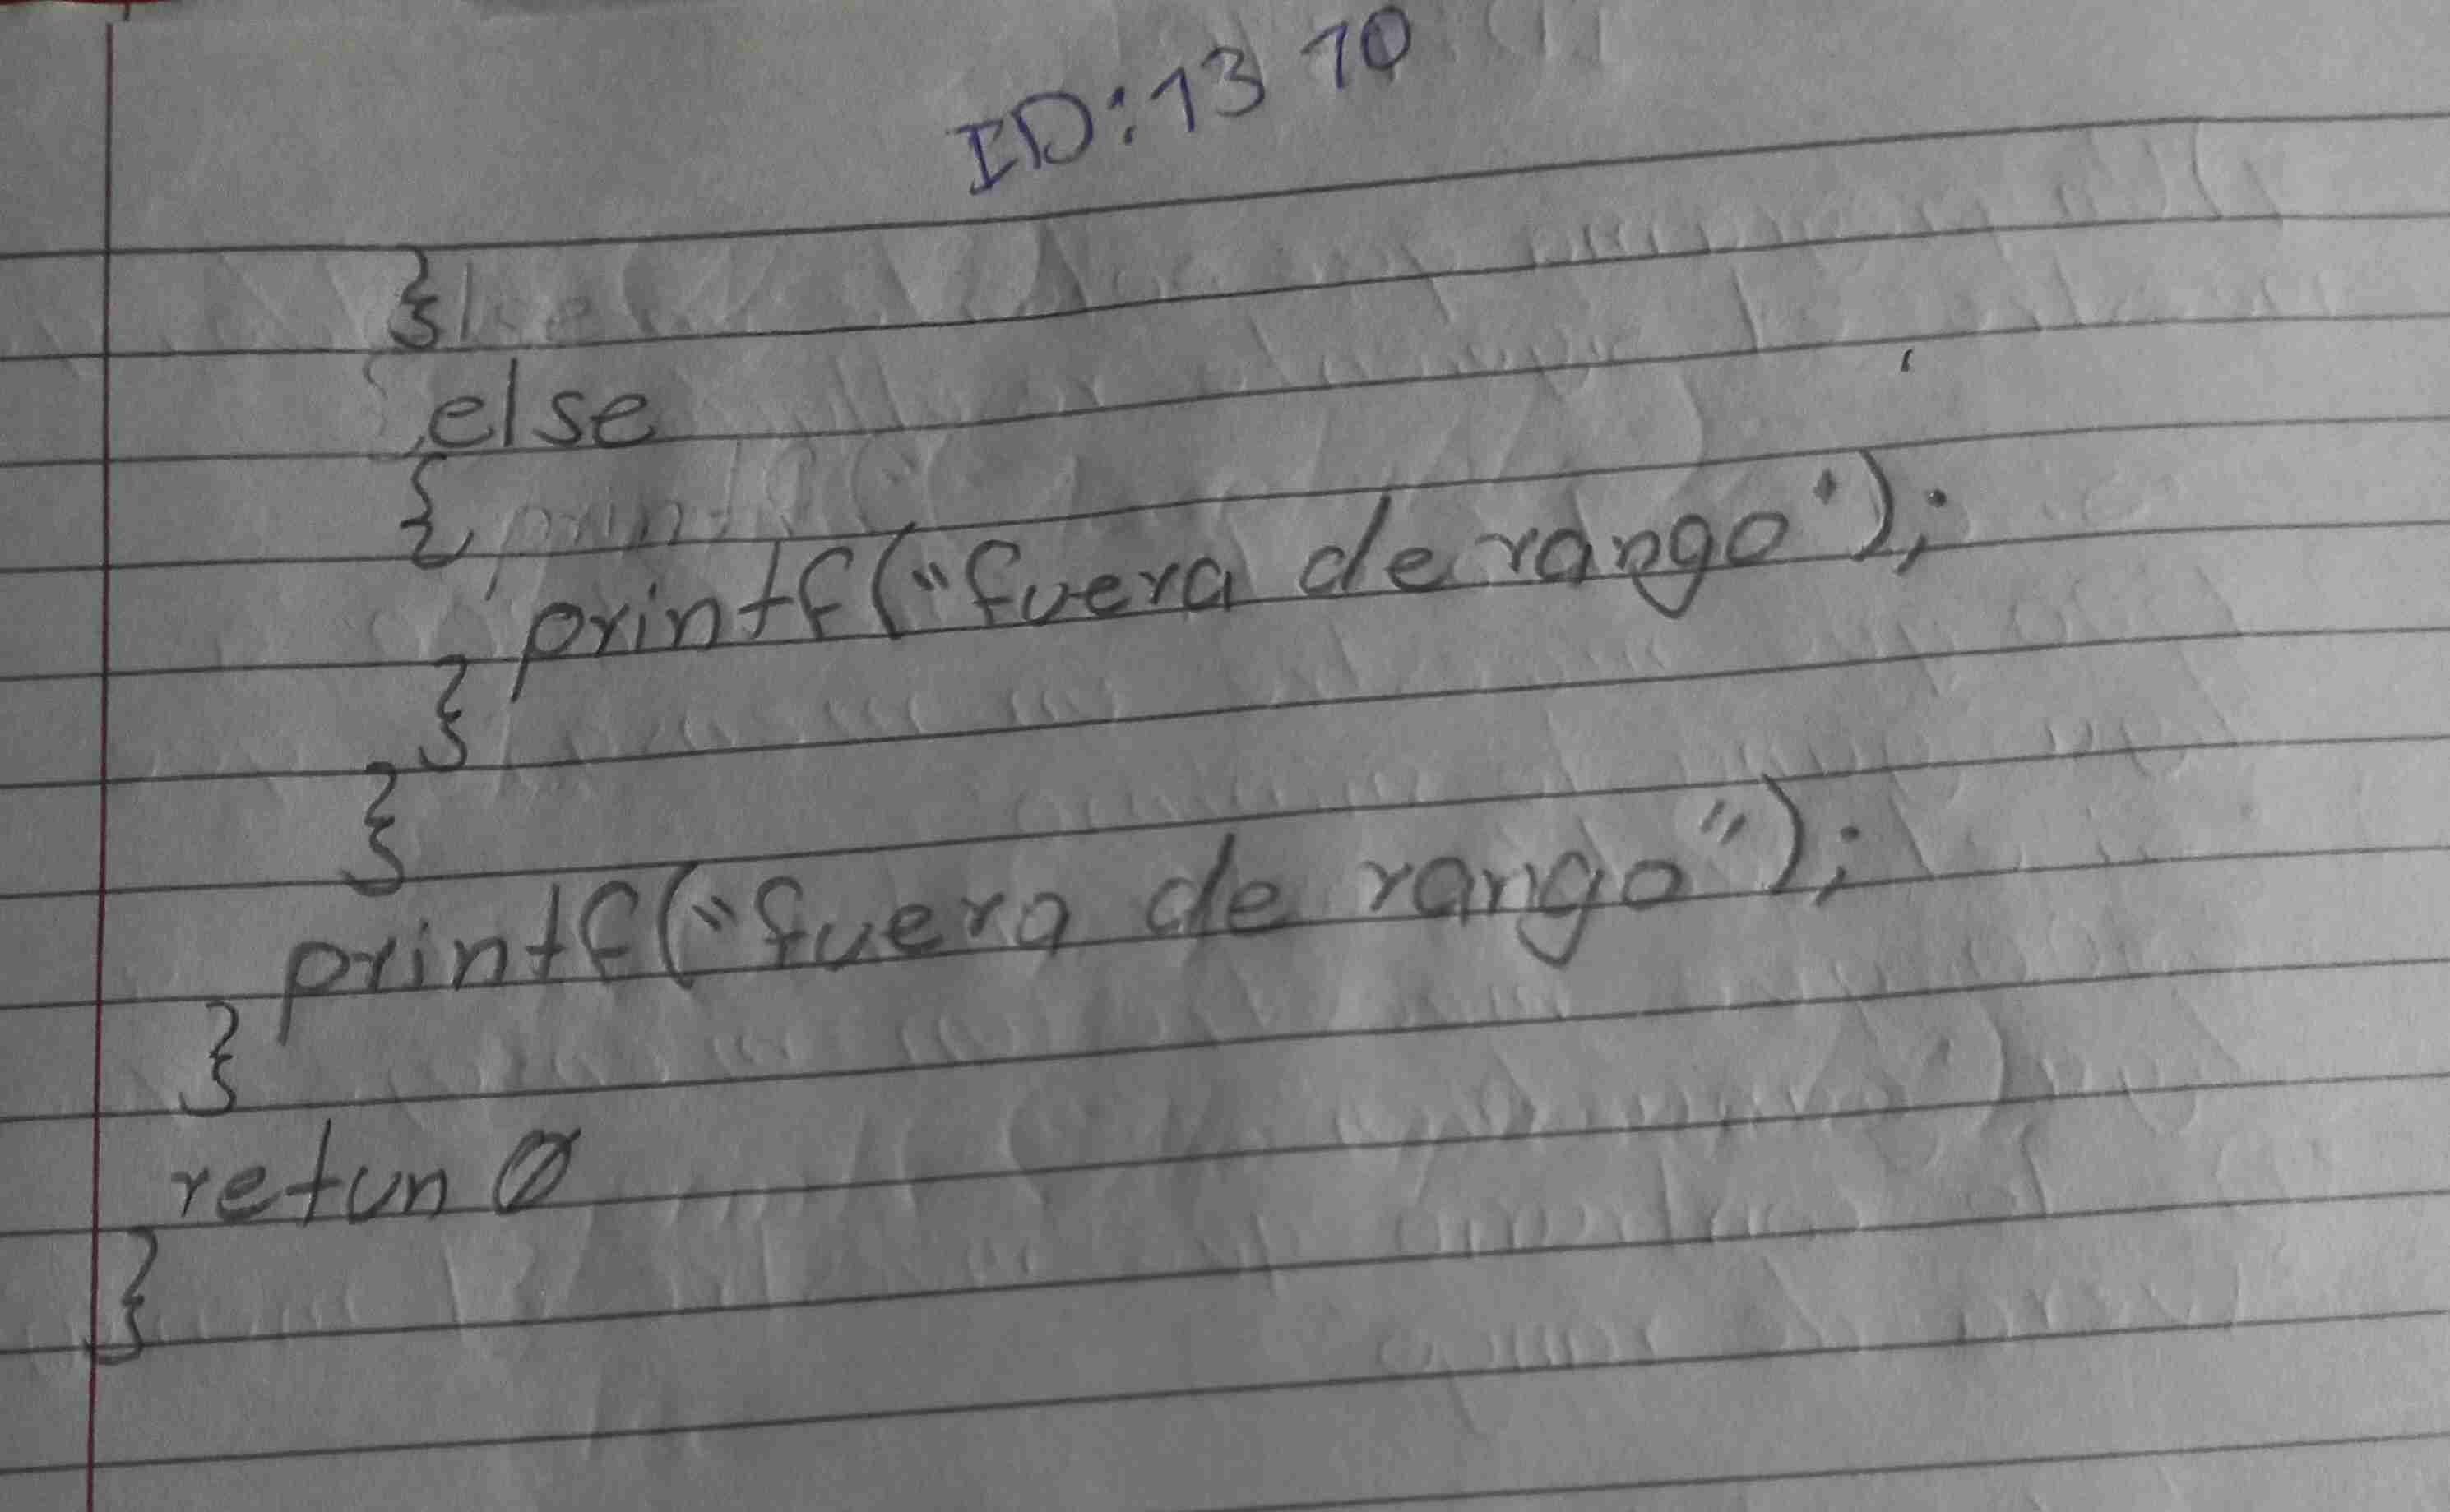 ID: 13 10
}
else
{
printf("fuera de rango");
}
}
printf("fuera de rango");
}
retun 0
}